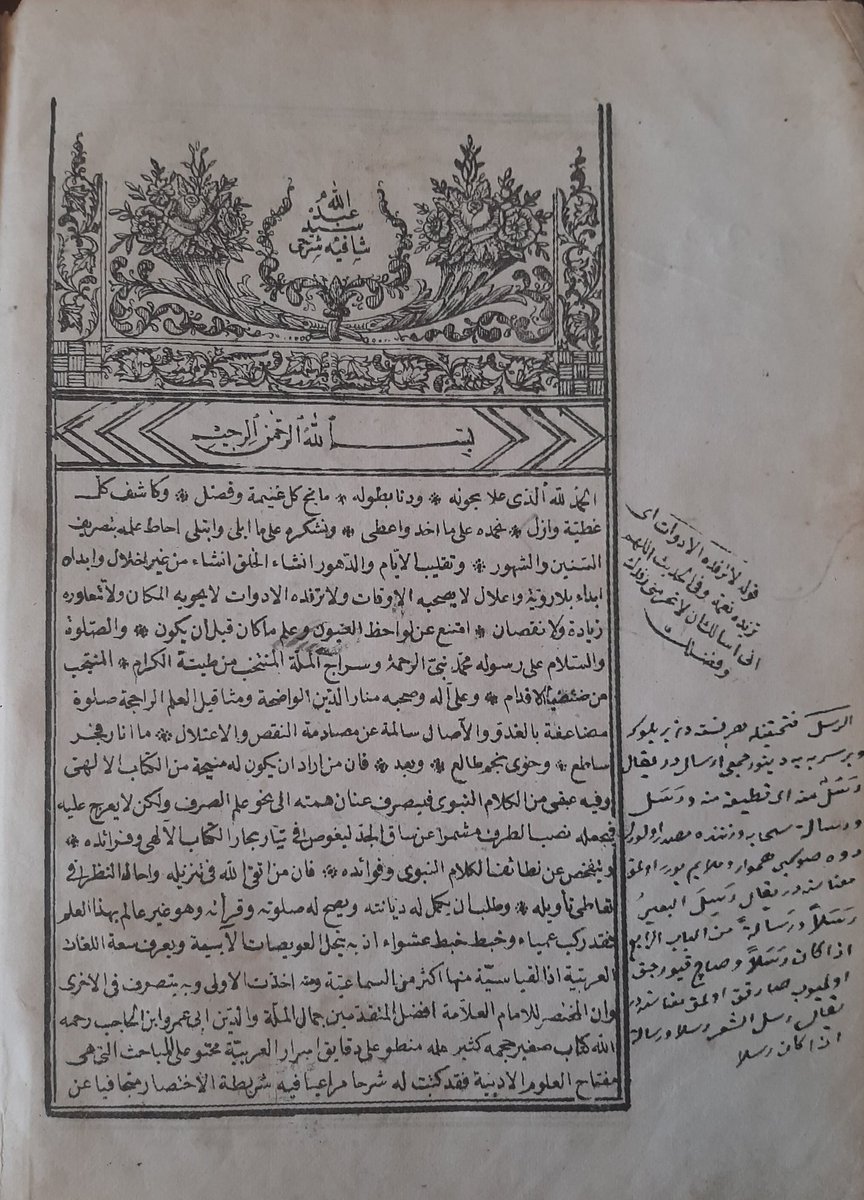 الله
عبد
سيد
شافيه شرحى
بسم الله الرحمن الرحيم
الحمد لله الذى علا بحوله * ودنا بطوله * مانح كل غنيمة وفضل * وكاشف كل
عظيمة وازل * نحمده على ما اخذ واعطى * ونشكره على ما ابلى وابتلى احاط علمه بتصريف
السنين والشهور * وتقليب الايام والدهور انشاء الخلق انشاء من غير اخلال وابداه
ابداء بلا روية واعلال لا يصحبه الاوقات ولا ترفده الادوات لا يحويه المكان ولا تتعاوره
زيادة ولا نقصان * امتنع عن لواحظ العيون وعلم ما كان قبل ان يكون * والصلوة
والسلام على رسوله محمد نبى الرحمة وسراج الملة المنتخب من طينة الكرام * المنتجب
من ضئضئ الاقدام * وعلى آله وصحبه منار الدين الواضحة ومثاقيل العلم الراجحة صلوة
مضاعفة بالغدو والآصال سالمة عن مصادمة النقص والاعتلال * ما انار فجر
ساطع * وخوى نجم طالع * وبعد * فان من اراد ان يكون له منيحة من الكتاب الالهى
وفيه عفى من الكلام النبوى فيصرف عنان همته الى نحو علم الصرف ولكن لا يعرج عليه
فيجعله نصب الطرف مشمرا عن ساق الجد ليغوص فى تيار بحار الكتاب الالهى وفرائده *
ويتفحص عن لطائف الكلام النبوى وفوائده * فان من اتقى الله فى تنزيله واجال النظر فى
تعاطى تأويله * وطلب ان يكمل له ديانته ويصح له صلوته وقرأته وهو غير عالم بهذا العلم
فقد ركب عمياء وخبط خبط عشواء اذ به ينحل العويصات الابية ويعرف سعة اللغات
العربية اذ القياسية منها اكثر من السماعية ومنه اخذت الاولى وبه يتصرف فى الاخرى
وان المختصر للامام العلامة افضل المتقدمين جمال الملة والدين ابى عمرو ابن الحاجب رحمه
الله كتاب صغير حجمه كثير علمه منطو على دقايق اسرار العربية محتو على المباحث التى هى
مفتاح العلوم الادبية فقد كتبت له شرحا مراعيا فيه شريطة الاختصار متجافيا عن
قوله لا ترفده الادوات اى
تزيده نعمة وفى الحديث اللهم
انى اسالك ان لا تحرمنى رفدك
وفضلك
الرسل فتحتينله
ورسالة سحابه وزننده مصدر اولور
معناسنه در يقال رسل البعير
رسلا ورسالة من الباب الرابع
اذا كان رسلا
اولميوب صارقق اولمق معناسنه در
يقال رسل الشعر رسلا ورسالة
اذا كان رسلا